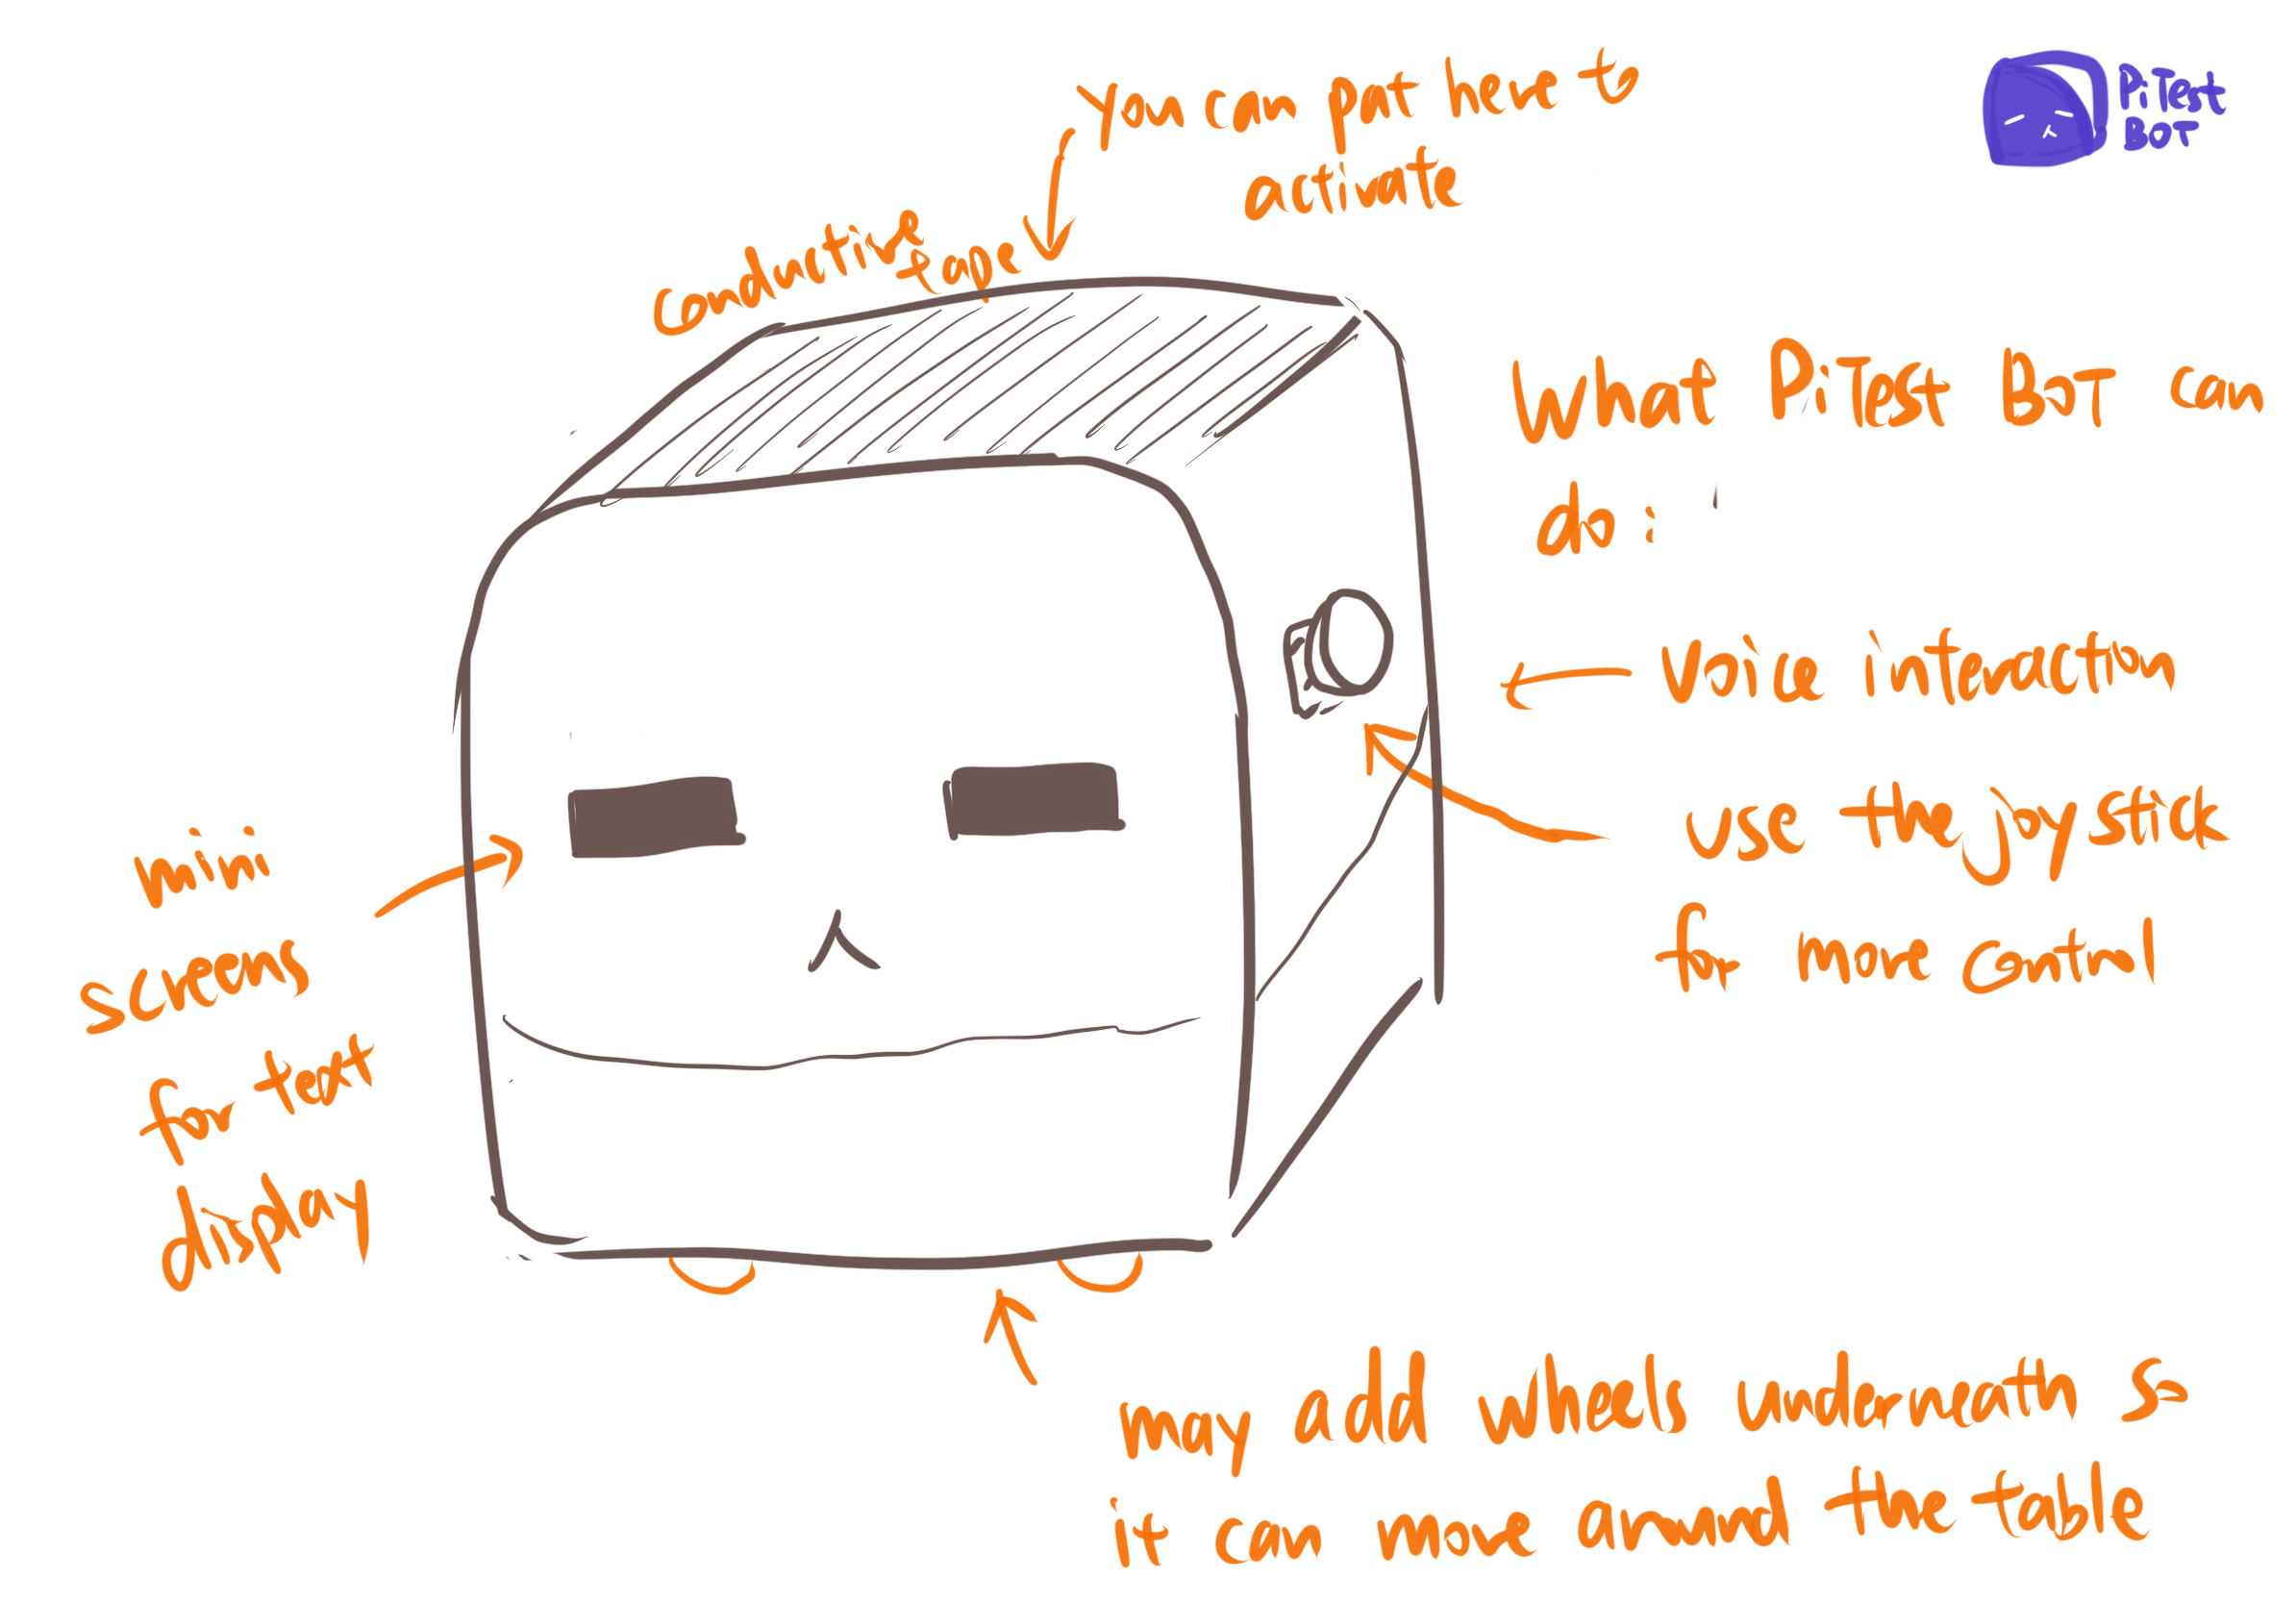 You can pat here to
activate
conductive
tape
PiTest
BOT
What PiTest BOT can
do:
voice interaction
use the joystick
for more control
mini
screens
for text
display
may add wheels underneath so
it can move around the table